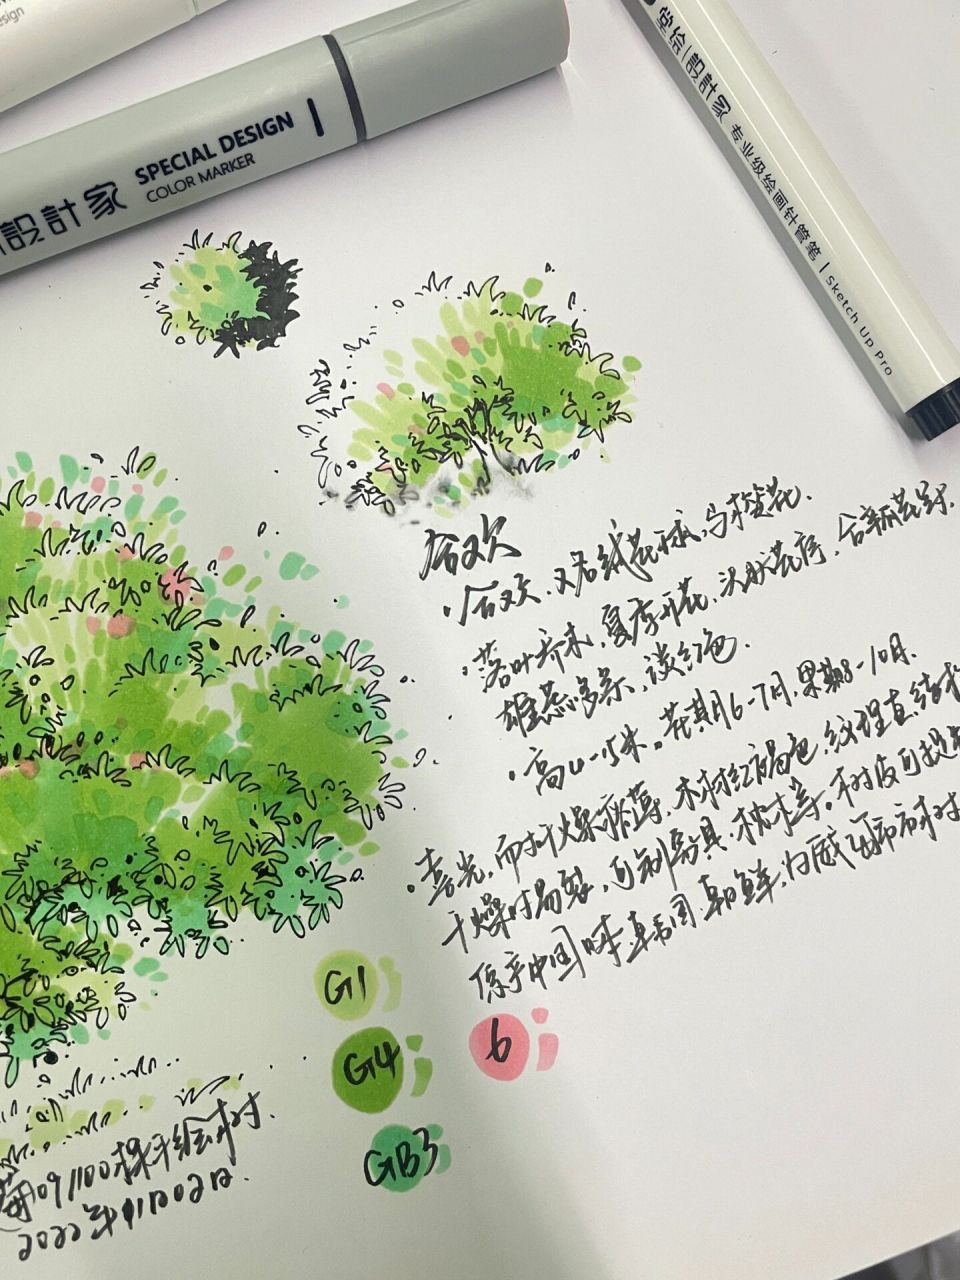 design
設計家 SPECIAL DESIGN
COLOR MARKER
堂绘|設計家 专业级绘画针管笔 | Sketch Up Pro
合欢
·合欢,又名绒花树,马樱花.
·落叶乔木,夏季开花,头状花序,合瓣花冠,
雄蕊多条,淡红色.
·高4-15米。花期6-7月,果期8-10月.
·喜光,而耐干燥瘠薄,木材红褐色,纹理直,结构
干燥时易裂,可制家具,枕木等。树皮可提
原产中国 韩国 朝鲜,为威 市市树
G1
G4
6
GB3
09/100棵手绘树.
2022年11月02日.